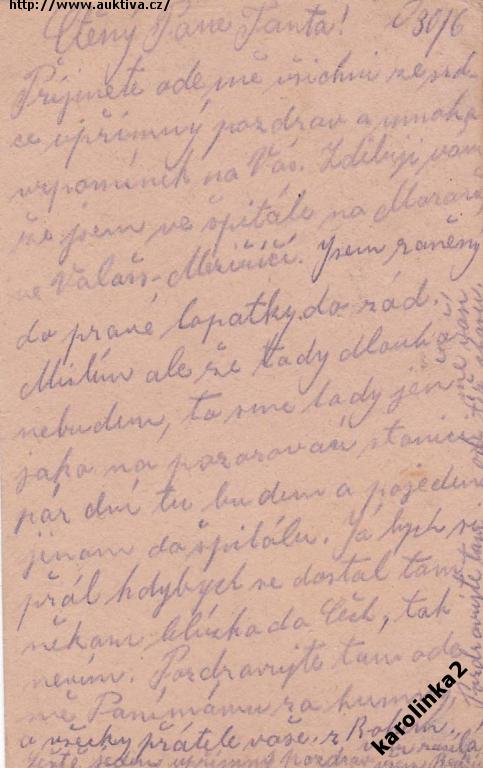 http://www.auktiva.cz/
Ctěný Pane Fanta! 30/6
Příjmete ode mě všichni ze srd-
ce upřímný pozdrav a mnoho
vzpomínek na Vás. Zděluji vam
že jsem ve špitále na Moravě
ve Valaš-Meziříčí. Jsem raněný
do pravé lopatky do zád.
Mislím ale že tady dlouho
nebudem, to sme tady jen
jako na pozorovací stanici
pár dní tu budem a pojedem
jinam do špitálu. Já bych si
přál kdybych se dostal tam
někam blízko do Čech, tak
nevím. Pozdravujte tam ode
mě Panímámu
a všecky přátele vaše z
Ještě jednou upřímný pozdrav
Pozdravujte tam
karolinka2